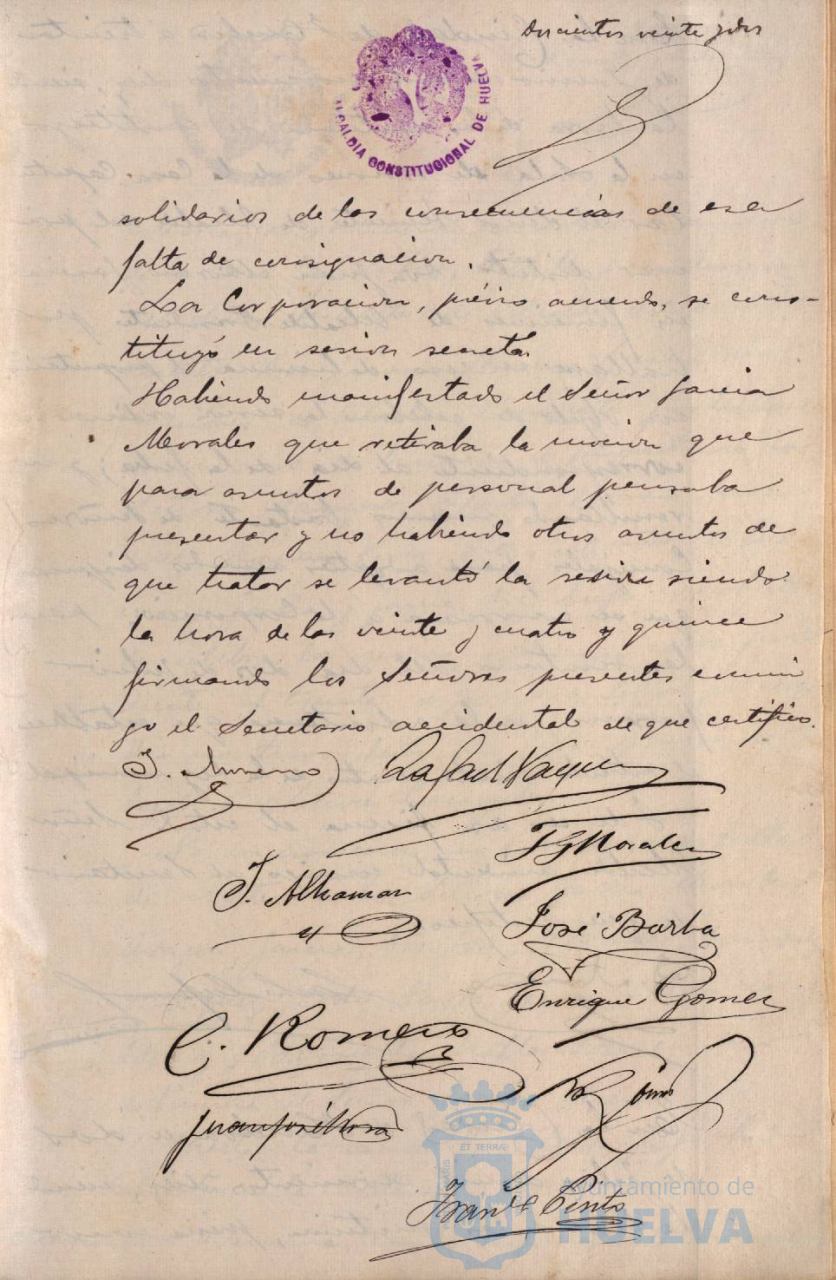 Doscientos veinte y dos
ALCALDIA CONSTITUCIONAL DE HUELVA
solidarios de las consecuencias de esa
falta de consignacion.
La Corporacion, prévio acuerdo, se cons-
tituyó en sesion secreta.
Habiendo manifestado el Señor Garcia
Morales que retiraba la mocion que
para asuntos de personal pensaba
presentar y no habiendo otros asuntos de
que tratar se levantó la sesion siendo
la hora de las veinte y cuatro y quince
firmando los Señores presentes conmi
go el Secretario accidental de que certifico.
J. Moreno Rafael Vazquez
F G Morales
J. Alhamar
José Barba
Enrique Gomez
C. Romero
Juan José Mora
ET TERRÆ
Ayuntamiento de
HUELVA
Franco Pinto